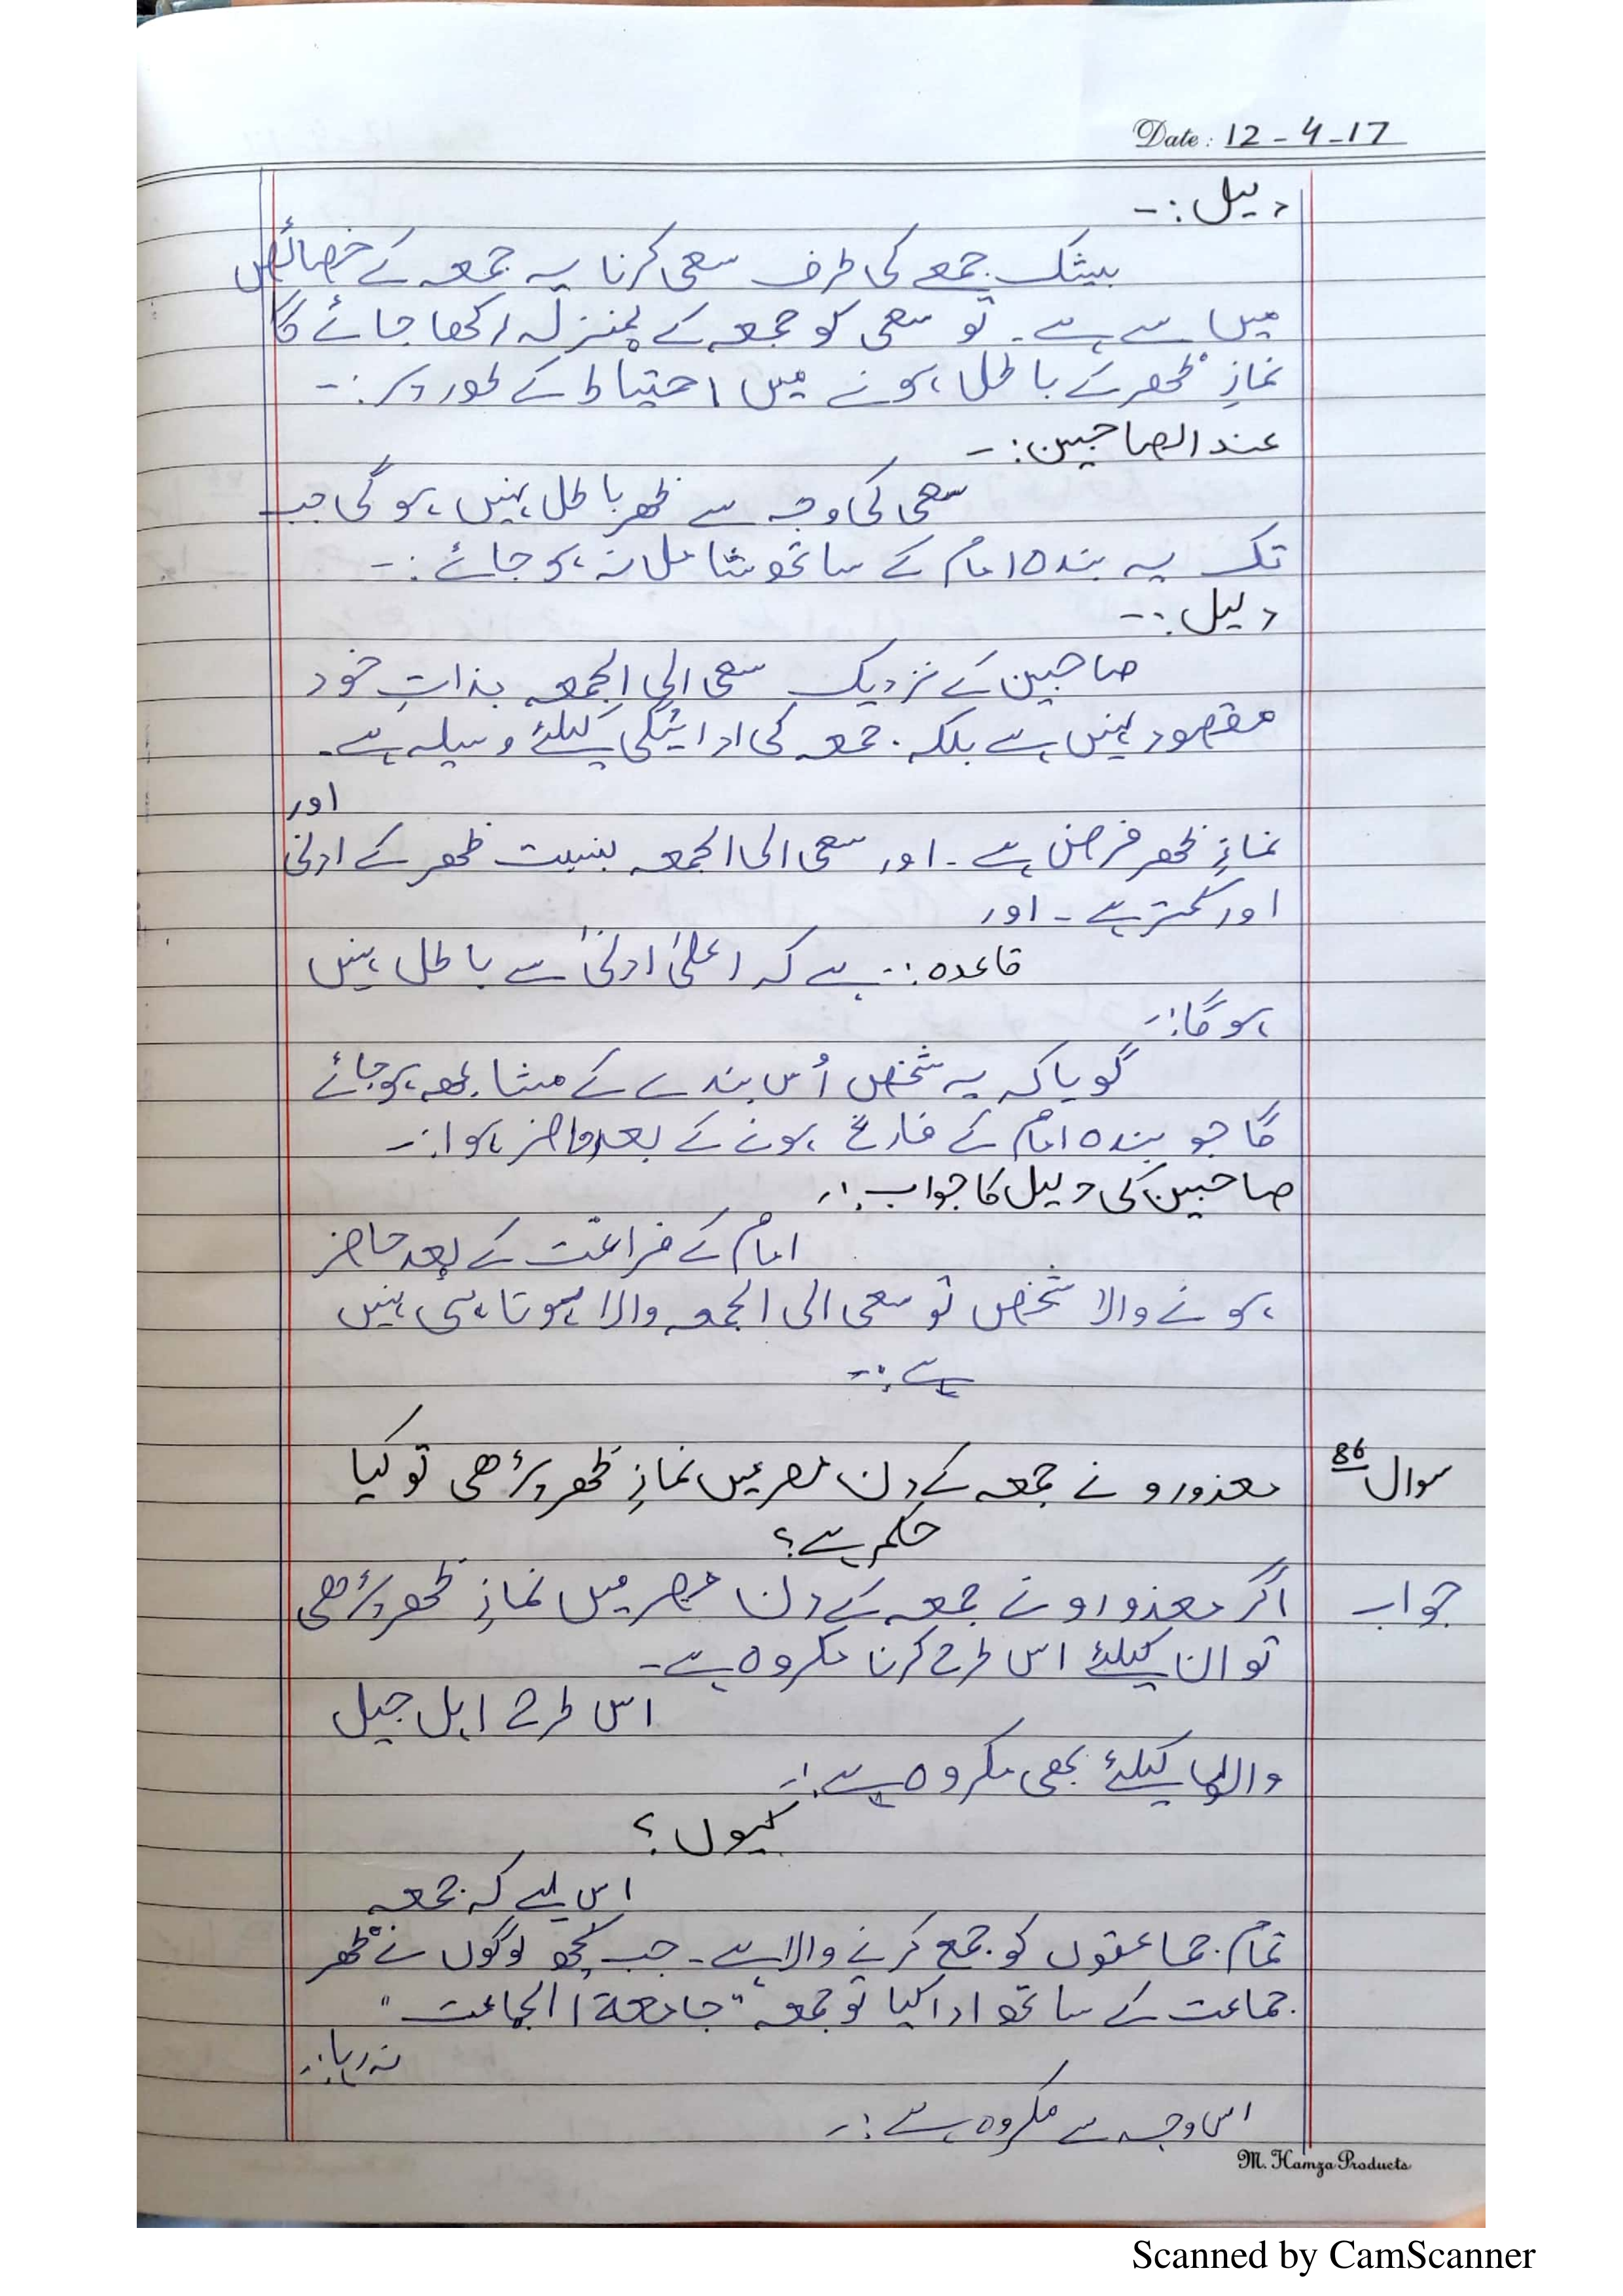 Date : 12-4-17
دلیل :-
بیشک جمعے کی طرف سعی کرنا یہ جمعہ کے خصائص
میں سے ہے۔ تو سعی کو جمعہ کے بمنزلہ رکھا جائے گا
نمازِ ظھر کے باطل ہونے میں احتیاط کے طور پر :-
عند الصاحبین :-
سعی کی وجہ سے ظھر باطل نہیں ہوگی جب
تک یہ بندہ امام کے ساتھ شامل نہ ہو جائے :-
دلیل :-
صاحبین کے نزدیک سعی الی الجمعہ بذاتِ خود
مقصود نہیں ہے بلکہ جمعہ کی ادائیگی کیلئے وسیلہ ہے۔
اور
نمازِ ظھر فرض ہے۔ اور سعی الی الجمعہ بنسبت ظھر کے ادنیٰ
اور کمتر ہے۔ اور
قاعدہ :- ہے کہ اعلیٰ ادنیٰ سے باطل نہیں
ہوگا :-
گویا کہ یہ شخص اُس بندے کے مشابھہ ہو جائے
گا جو بندہ امام کے فارغ ہونے کے بعد حاضر ہوا :-
صاحبین کی دلیل کا جواب :-
امام کے فراغت کے بعد حاضر
ہونے والا شخص تو سعی الی الجمعہ والا ہوتا ہی نہیں
ہے :-
سوال 86 معذورو نے جمعہ کے دن مصر میں نمازِ ظھر پڑھی تو کیا
حکم ہے؟
جواب اگر معذورو نے جمعہ کے دن مصر میں نمازِ ظھر پڑھی
تو ان کیلئے اس طرح کرنا مکروہ ہے۔
اس طرح اہل جیل
والوں کیلئے بھی مکروہ ہے :-
کیوں؟
اس لیے کہ جمعہ
تمام جماعتوں کو جمع کرنے والا ہے۔ جب کچھ لوگوں نے ظھر
جماعت کے ساتھ ادا کیا تو جمعہ "جامعۃ الجماعت"
نہ رہا :-
اس وجہ سے مکروہ ہے :-
M. Hamza Products
Scanned by CamScanner